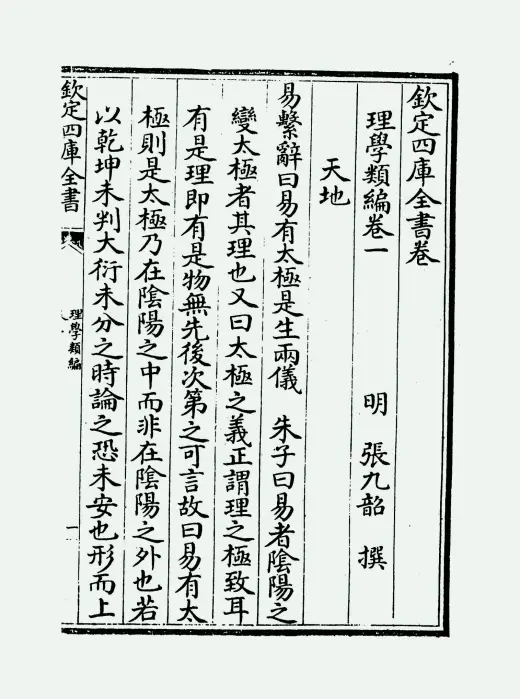 欽定四庫全書卷
理學類編卷一
明 張九韶 撰
天地
易繫辭曰易有太極是生兩儀 朱子曰易者陰陽之
變太極者其理也又曰太極之義正謂理之極致耳
有是理即有是物無先後次第之可言故曰易有太
極則是太極乃在陰陽之中而非在陰陽之外也若
以乾坤未判大衍未分之時論之恐未安也形而上
欽定四庫全書
理學類編
一